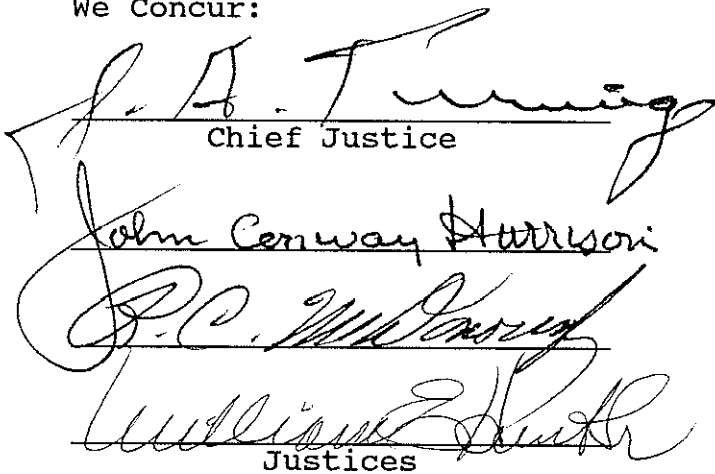 We Concur:
J. A. Turnage
Chief Justice
John Conway Harrison
R. C. McDonough
William E Hunt Jr
Justices